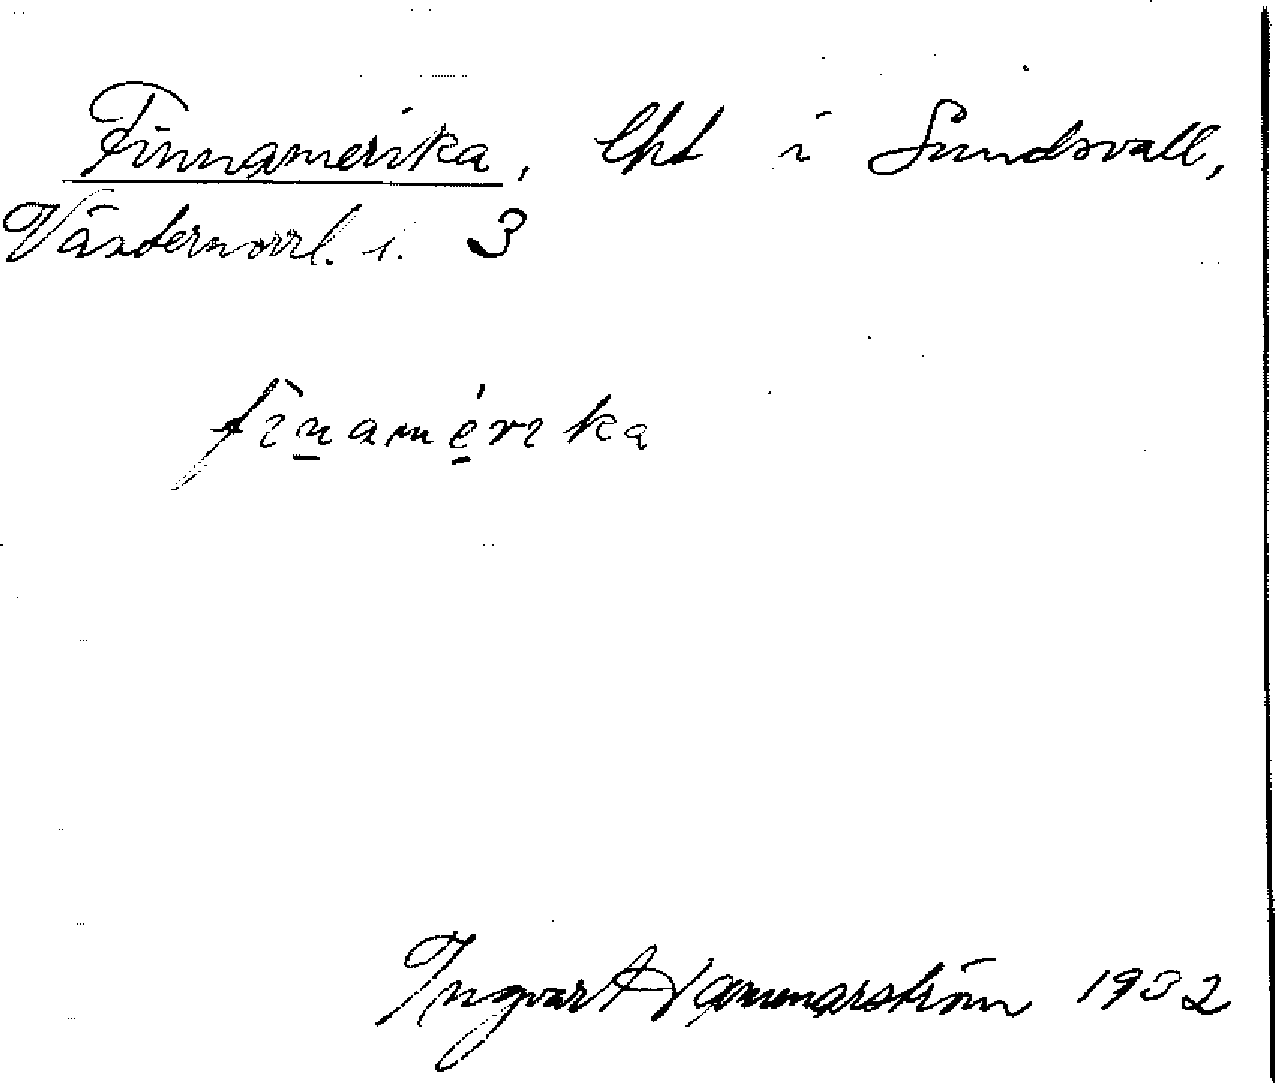 Finnamerika, lht i Sundsvall,
Västernorrl. l. 3
finamérika
Ingvar Hammarström 1932